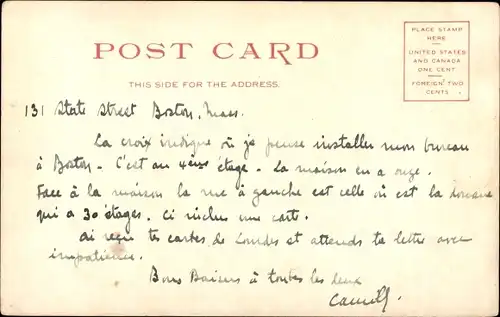 POST CARD
THIS SIDE FOR THE ADDRESS.
PLACE STAMP
HERE
UNITED STATES
AND CANADA
ONE CENT
FOREIGN TWO
CENTS
131 State Street Boston, Mass.
La croix indique où je pense installer mon bureau
à Boston - C'est au 4ème étage - La maison en a onze.
Face à la maison la rue à gauche est celle où est la douane
qui a 30 étages. Ci inclus une carte.
ai reçu tes cartes de Lourdes et attends ta lettre avec
impatience.
Bons Baisers à toutes les deux
Camille.